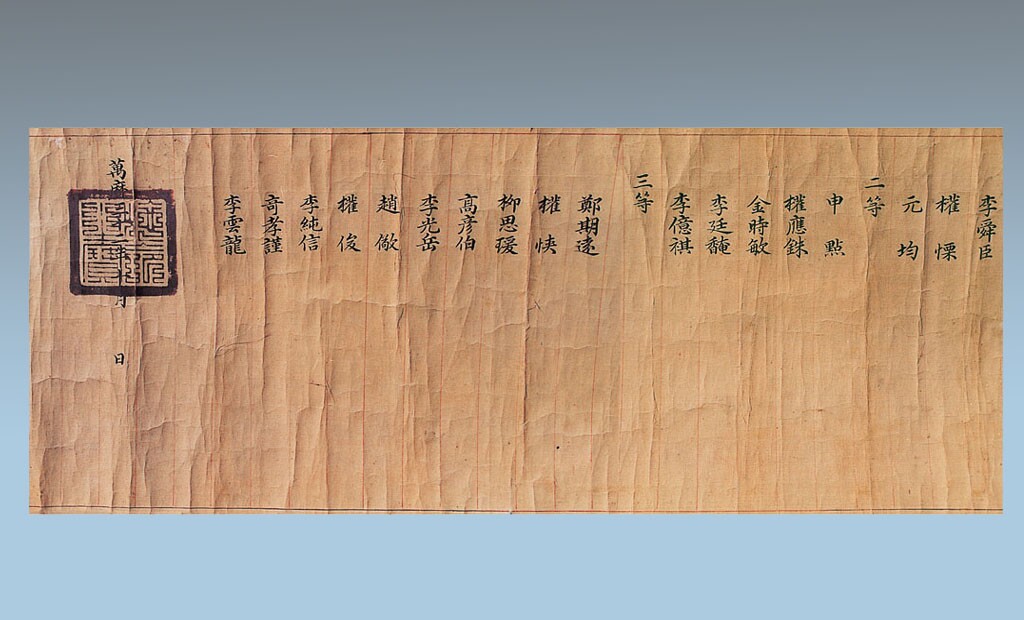 李舜臣
權慄
元均
二等
申點
權應銖
金時敏
李廷馣
李億祺
三等
鄭期遠
權悏
柳思瑗
高彦伯
李光岳
趙儆
權俊
李純信
奇孝謹
李雲龍
萬曆年十月 日